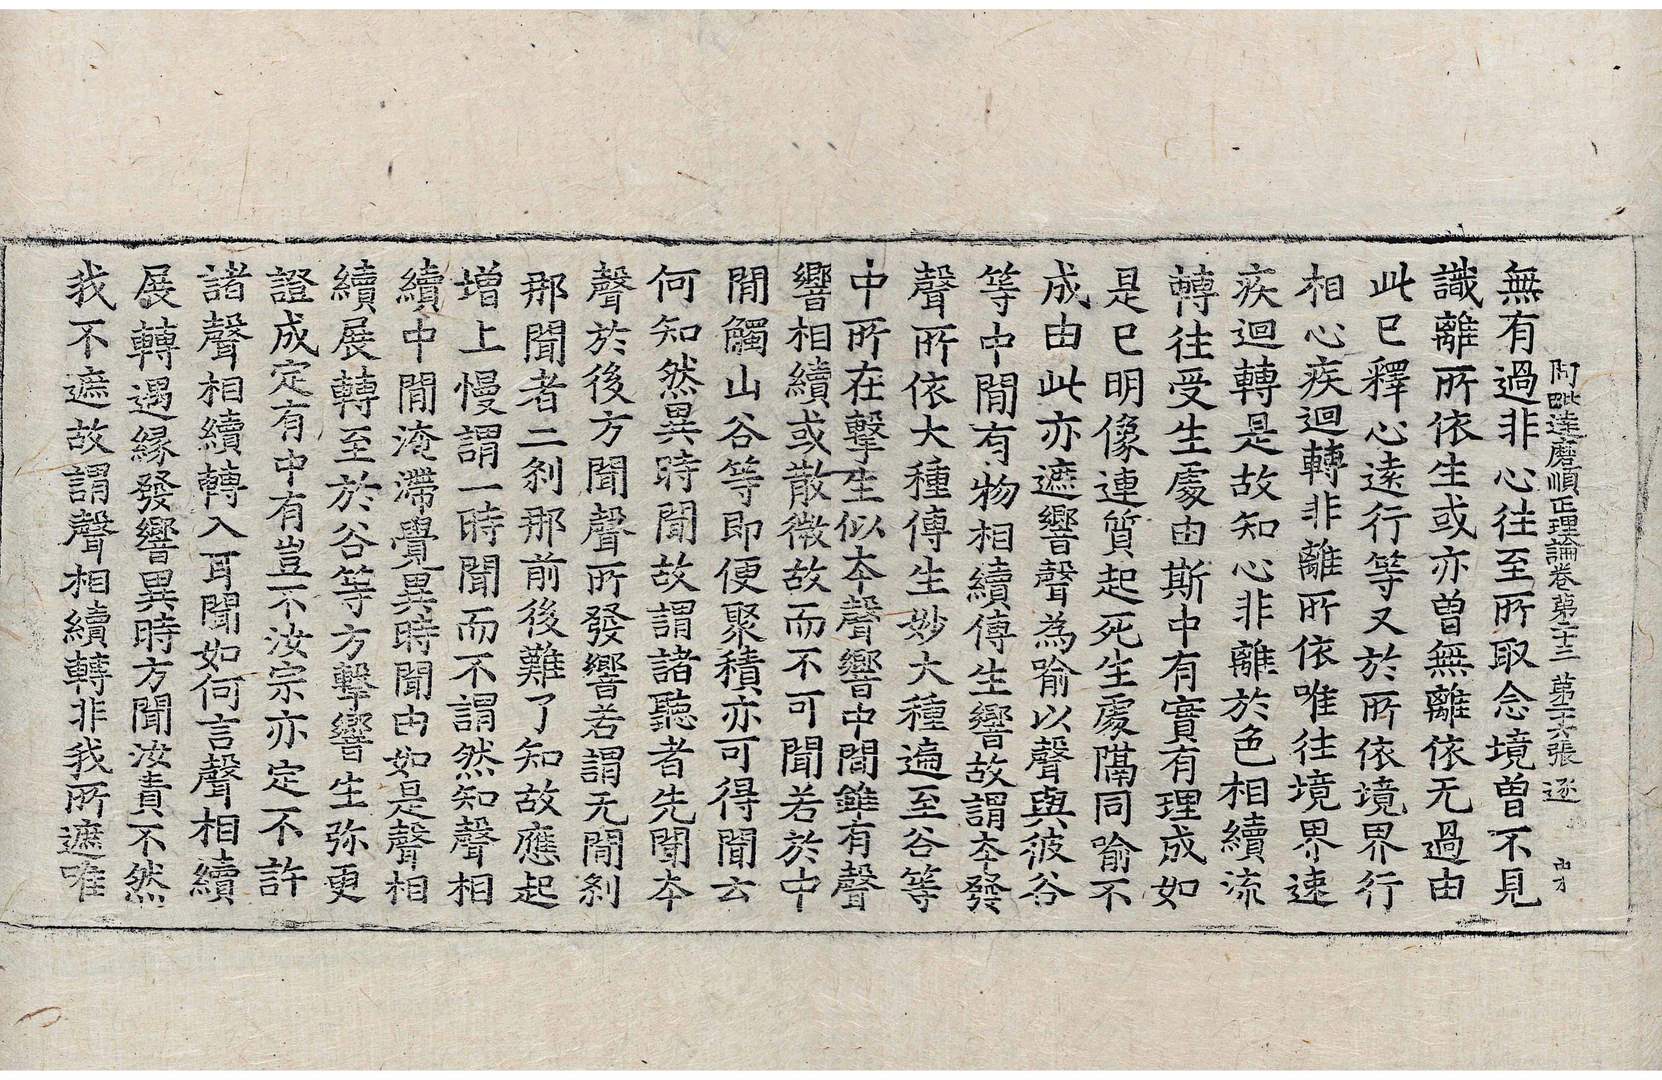 阿毗達磨順正理論卷第二十三 第二十六張 逐
無有過非心往至所取念境曾不見
識離所依生或亦曾無離依无過由
此已釋心遠行等又於所依境界行
相心疾迴轉非離所依唯往境界速
疾迴轉是故知心非離於色相續流
轉往受生處由斯中有實有理成如
是已明像連質起死生處隔同喻不
成由此亦遮響聲為喻以聲與彼谷
等中閒有物相續傳生響故謂夲發
聲所依大種傳生妙大種遍至谷等
中所在擊生似夲聲響中間雖有聲
響相續或散微故而不可聞若於中
閒觸山谷等即便聚積亦可得聞云
何知然異時聞故謂諸聽者先聞夲
聲於後方聞聲所發響若謂无閒刹
那聞者二刹那前後難了知故應起
增上慢謂一時聞而不謂然知聲相
續中閒淹滯覺異時聞由如是聲相
續展轉至於谷等方擊響生弥更
證成定有中有豈不汝宗亦定不許
諸聲相續轉入耳聞如何言聲相續
展轉遇緣發響異時方聞汝責不然
我不遮故謂聲相續轉非我所遮唯